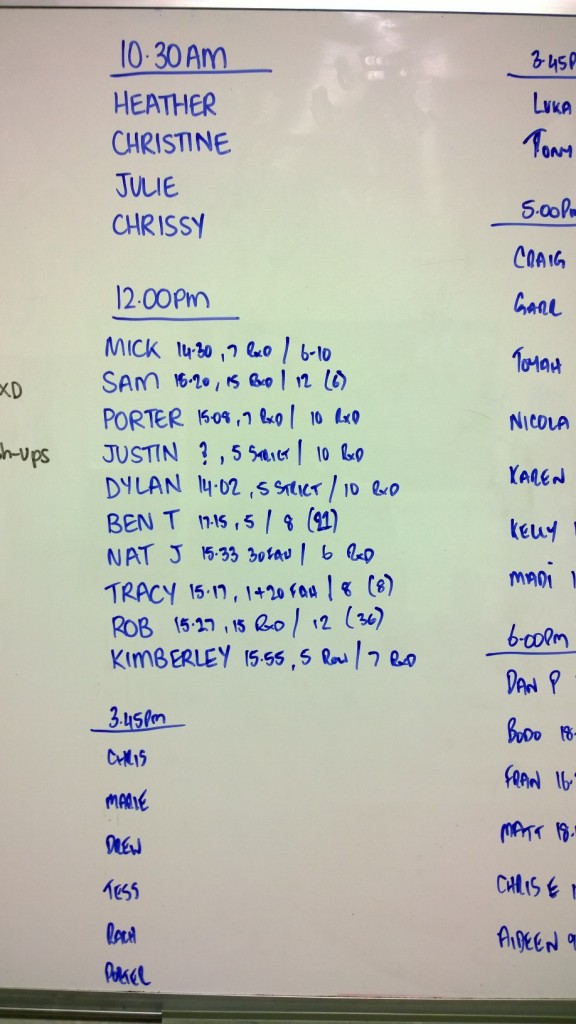 10.30AM
HEATHER
CHRISTINE
JULIE
CHRISSY
12.00PM
MICK 14.30, 7 RXD / 6-10
SAM 15.20, 15 RXD / 12 (6)
PORTER 15.08, 7 RXD / 10 RXD
JUSTIN ?, 5 STRICT / 10 RXD
DYLAN 14.02, 5 STRICT / 10 RXD
BEN T 17.15, 5 / 8 (21)
NAT J 15.33 30 / 6 RXD
TRACY 15.17, 1+20 / 8 (8)
ROB 15.27, 15 RXD / 12 (36)
KIMBERLEY 15.55, 5 / 7 RXD
3.45PM
CHRIS
MARIE
DREW
TESS
RACH
PORTER
XD
h-ups
3.45P
LUKA
TONY
5.00PM
CRAIG
GARR
TOMAH
NICOLA
KAREN
KELLY
MADI
6.00PM
DAN P
BODO 18.
FRAN 16.
MATT 18.
CHRIS E
AIDEEN 9